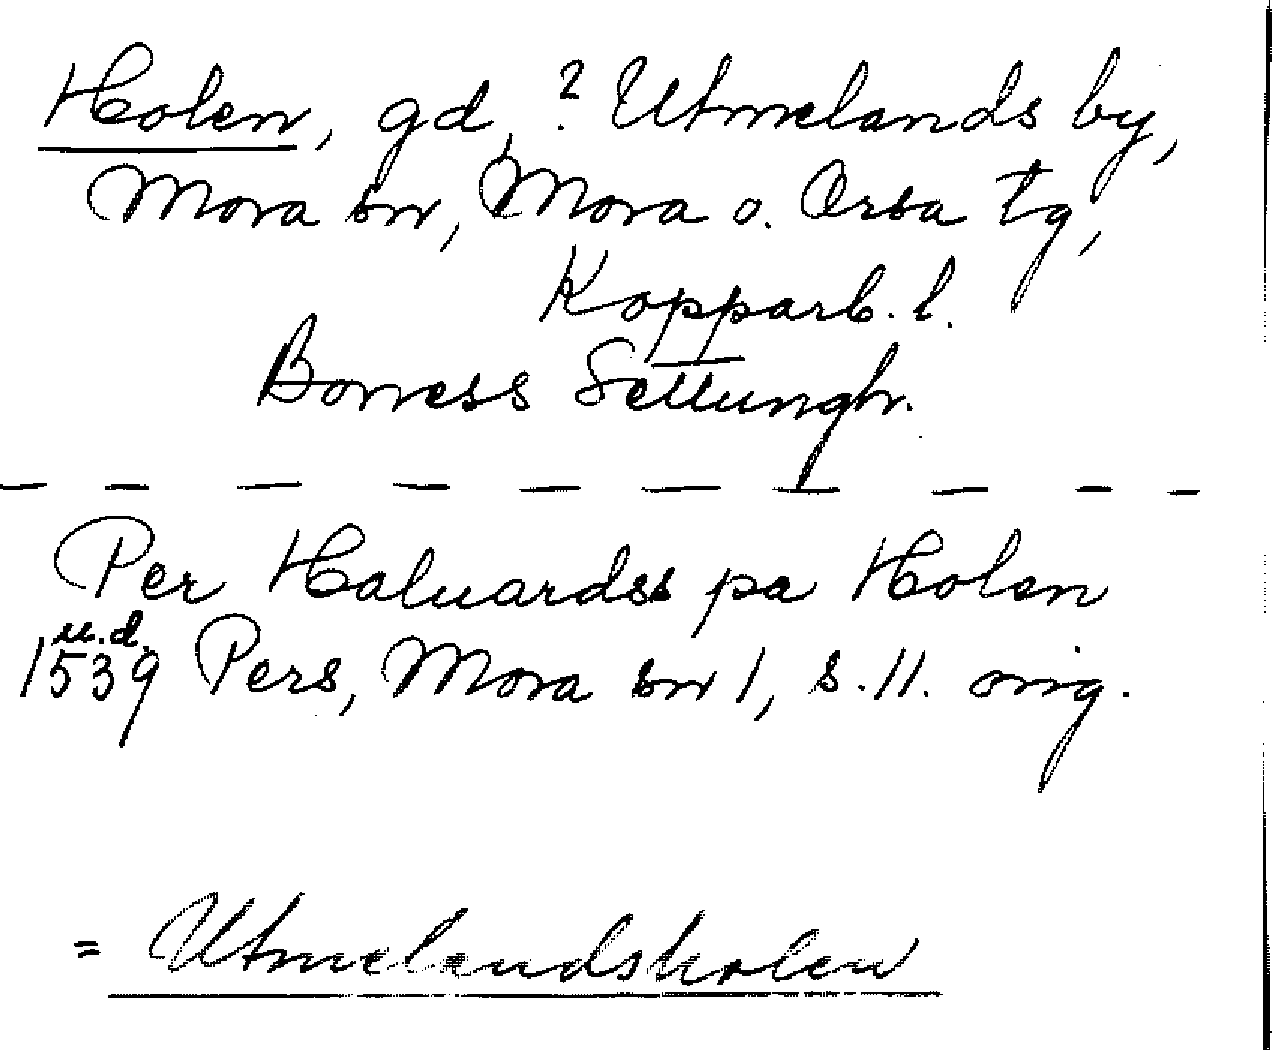 Holen, gd, ? Utmelands by,
Mora sn, Mora o. Orsa tg,
Kopparb. l.
Per Haluardss pa Holen
1539 u.d. Pers, Mora sn 1, s. 11. orig.
= Utmelandsholen